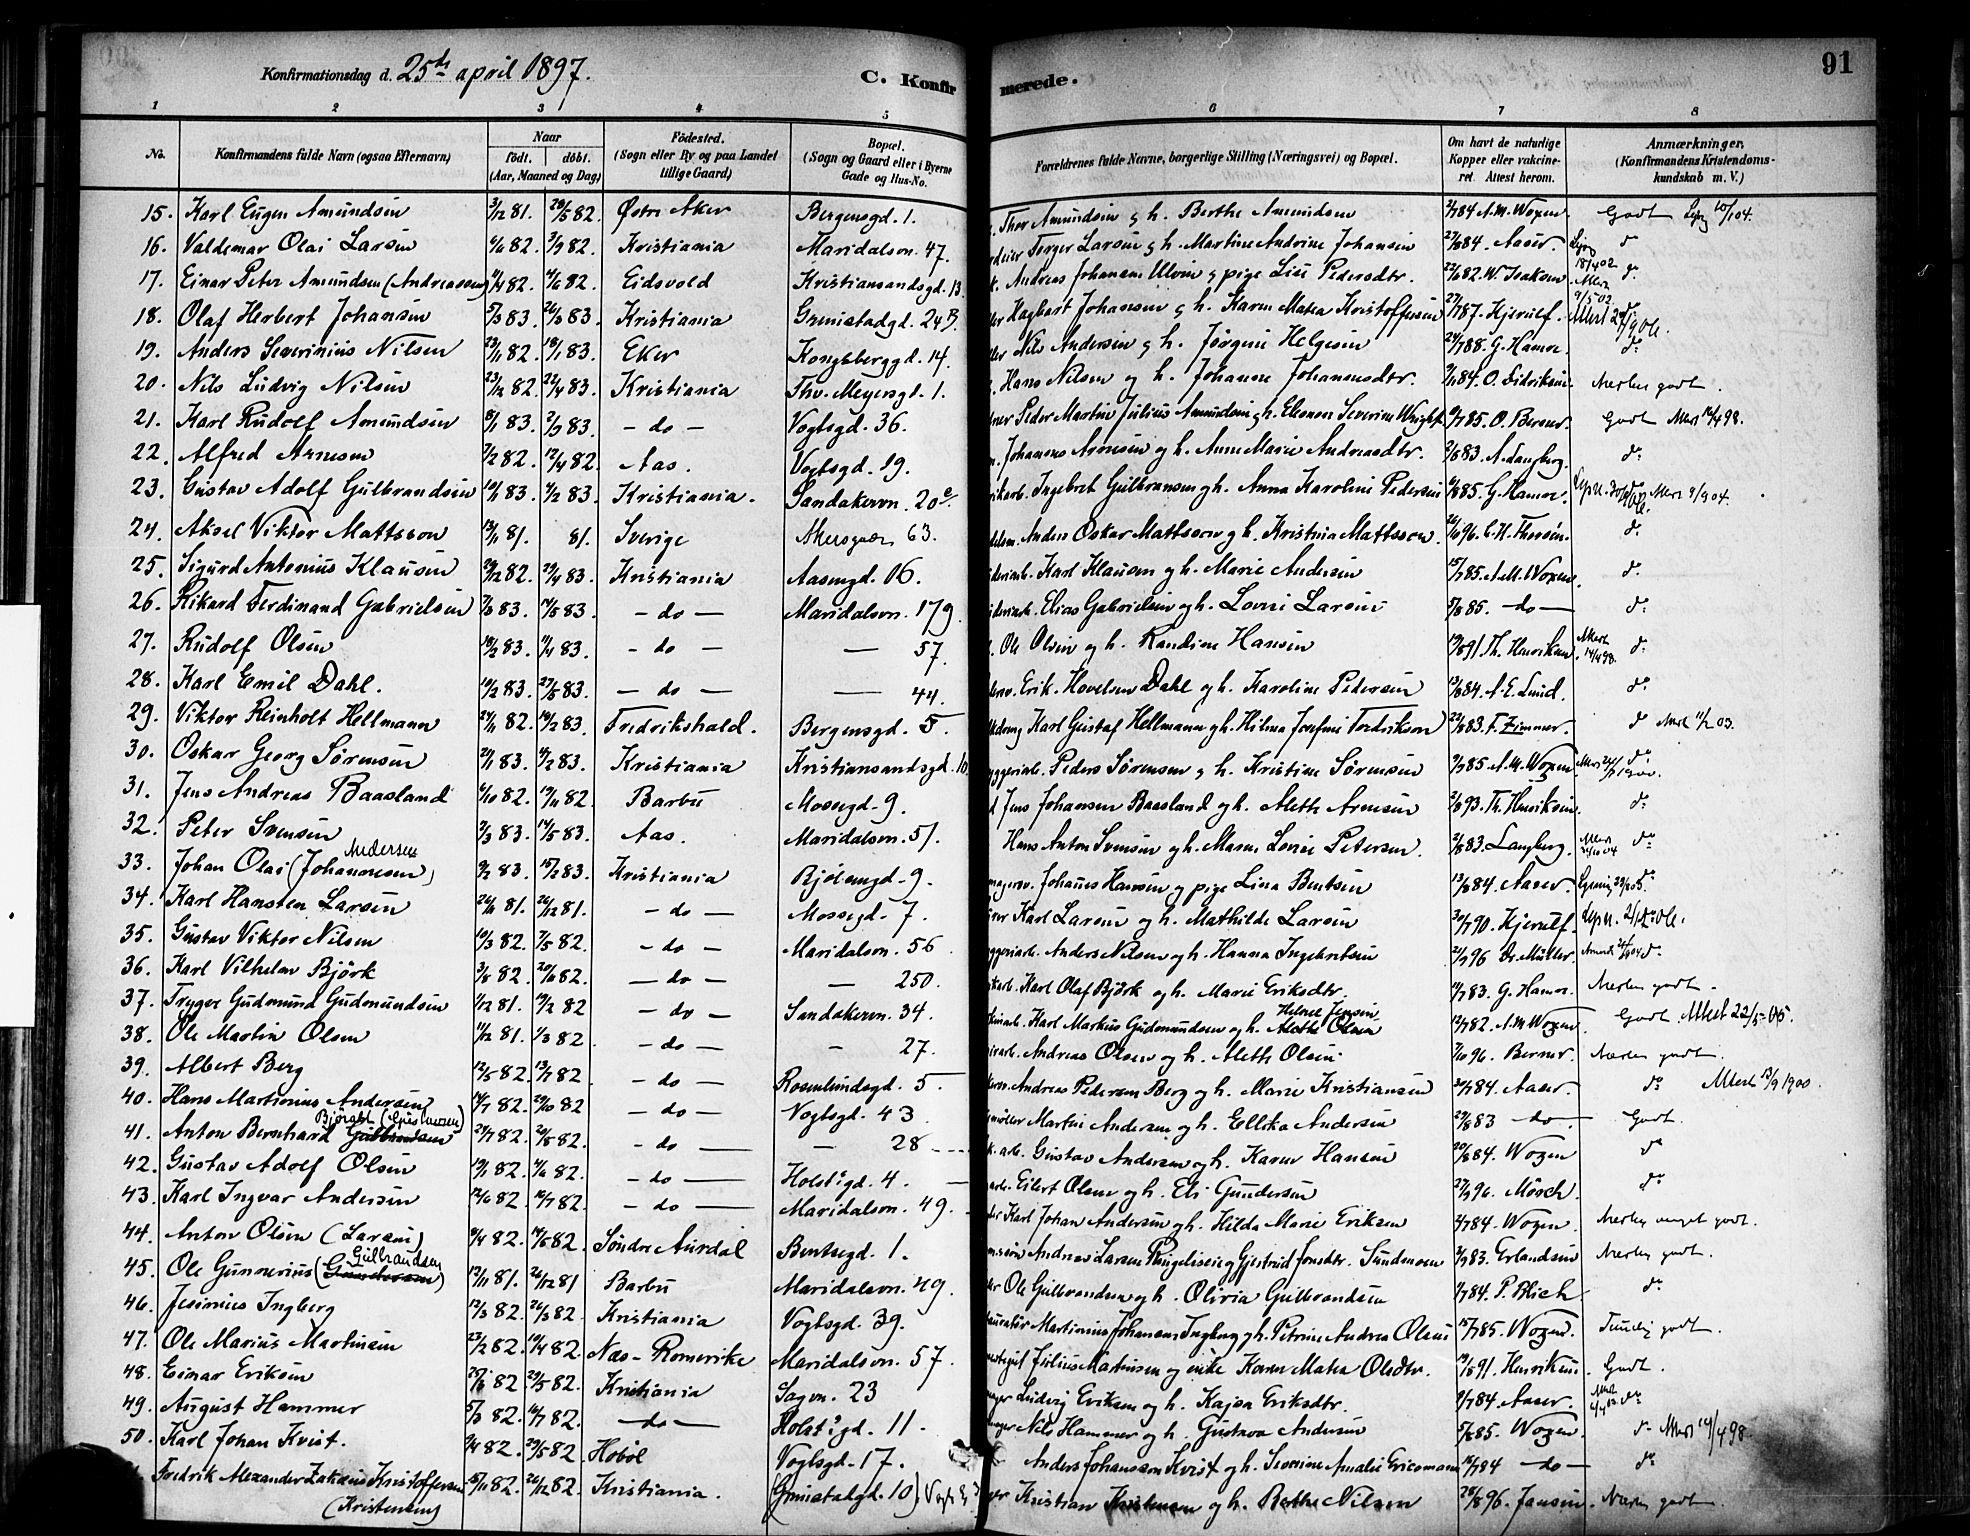 Konfirmationsdag d. 25de april 1897.
C. Konfirmerede.
91
1 2 3 4 5 6 7 8
No. Konfirmandens fulde Navn (ogsaa Efternavn) Naar født. døbt. (Aar, Maaned og Dag) Fødested. (Sogn eller By og paa Landet tillige Gaard) Bopæl. (Sogn og Gaard eller i Byerne Gade og Hus-No. Forældrenes fulde Navne, borgerlige Stilling (Næringsvei) og Bopæl. Om havt de naturlige Kopper eller vakcineret. Attest herom. Anmærkninger. (Konfirmandens Kristendomskundskab m. V.)
15. Karl Eugen Amundsen 3/12 81. 28/5 82. Østre Aker Bergensgd. 1. Thor Amundsen g h. Berthe Amundsen 2/7 84 A.M. Woxen. Godt
16. Valdemar Olai Larsen 4/6 82. 3/9 82. Kristiania Maridalsvn. 47. Torger Larsen g h. Martine Andrine Johansen 27/8 84. Aaser. do
17. Einar Peter Amundsen (Andreassen) 4/6 82. Eidsvold Kristiansandsgd. 13. Andreas Johansen Ulvin g pige Lise Pedersdtr. 22/6 82. W. Isaksen. do
18. Olaf Herbert Johansen 5/3 83. 26/3 83. Kristiania Grimstadgd. 24 B. Hagbart Johansen g h. Karen Matea Kristoffersen 27/7 87. Hjerulf.
19. Anders Severinius Nilsen 23/11 82. 18/1 83. Eker Kongsberggd. 14. Nils Andersen g h. Jørgine Helgesen 24/7 88. G. Hamre. do
20. Nils Ludvig Nilsen 23/12 82. 22/4 83. Kristiania Thv. Meyersgd. 1. Hans Nilsen og h. Johanne Johannesdtr. O. Didriksen. Meget godt.
21. Karl Rudolf Amundsen 18/1 83. 2/3 83. - do - Vogtsgd. 36. Peder Martin Julius Amundsen g h. Eleonore Severine 9/7 85. O. Berner. Godt
22. Alfred Arnesen 7/2 82. 12/4 82. Aas. Vogtsgd. 19. Johannes Arnesen og h. Anne Marie Andreasdtr. 2/8 83. A. Langberg. do
23. Gustav Adolf Gulbrandsen 10/1 83. 4/2 83. Kristiania. Sandakervn. 20 Ingebret Gulbransen g h. Anna Karoline Pedersen 6/8 85. G. Hamre. 9/9 04.
24. Aksel Viktor Mattsson 13/11 81. 81. Sverige 63. Anders Oskar Mattsson g h. Kristina Mattsson. 26/10 96. do
25. Sigurd Antonius Klausen 29/12 82. 29/4 83. Kristiania Aasengd. 16. Karl Klausen g h. Marie Andersen 15/7 85. A.M. Woxen. do
26. Rikard Ferdinand Gabrielsen 7/3 83. 14/5 83. - do - Maridalsvn. 179. Elias Gabrielsen og h. Lovise Larsen 5/8 85. - do - do
27. Rudolf Olsen 18/2 83. 11/4 83. - do - — 57. Ole Olsen og h. Randine Hansen 13/8 91. Th. Henriksen 14/4 98. do
28. Karl Emil Dahl. 10/2 83. 27/5 83. - do - — 44. Erik Hovelsen Dahl og h. Karoline Pedersen 13/8 84. A.E. Lund. do
29. Viktor Reinholt Hellmann 24/11 82. 14/2 83. Fredrikshald. Bergensgd. 5. Karl Gustaf Hellmann g h. Hilma Josefine Fredrikson 22/8 83. F. Zimmer. do
30. Oskar Georg Sørensen 20/1 83. 4/2 83. Kristiania Kristiansandsgd. 10. Peder Sørensen g h. Kristine Sørensen 9/7 85. A.M. Woxen do
31. Jens Andreas Baasland 4/10 82. 19/11 82. Barbu Mossegd. 9. Jens Johansen Baasland og h. Aleth Arnesen 2/8 93. Th. Henriksen. do
32. Peter Svensen 7/3 83. 14/5 83. Aas. Maridalsvn. 51. Hans Anton Svensen g h. Maren Lovise Petersen. 2/8 83. Langberg. do
33. Johan Olai (Johannesen) Andersen 9/2 83. 15/2 83. Kristiania Bjølsengd. 9. Johannes Hansen g pige Lina Bentsen 13/8 84. Aaser. do
34. Karl Hansten Larsen 26/11 81. 26/12 81. - do - Mossegd. 7. Karl Larsen og h. Mathilde Larsen 30/7 90. Hjerulf.
35. Gustav Viktor Nilsen 10/3 82. 7/5 82. - do - Maridalsvn. 56 Anders Nilsen og h. Hanna Ingebretsen 21/7 96 Dr. Müller. do
36. Karl Vilhelm Björk 3/6 82. 20/6 82. - do - — 250. Karl Olaf Björk og h. Marie Eriksdtr. 11/7 83. G. Hamre. Meget godt.
37. Trygve Gudmund Gudmundsen 1/12 81. 19/2 82 - do - Sandakervn. 34. Karl Markus Gudmundsen og h. Helene Jensen 12/7 82. A.M. Woxen. Godt. Attest 22/5 05.
38. Ole Martin Olsen 11/12 81. 1/3 82 - do - — 27. Andreas Olsen og h. Aleth Olsen. 7/10 96. Berner. Meget godt.
39. Albert Berg 12/5 82. 13/7 82 - do - Rosenlundsgd. 5 Andreas Pedersen Berg g h. Marie Kristiansen 30/7 84. Aaser. do Attest 13/9 1900.
40. Hans Martinius Andersen 14/7 82. 29/10 82 - do - Vogtsgd. 43 Martin Andersen og h. Ellika Andersen 29/8 83 - do - Godt.
41. Anton Bernhard Gulbrandsen Bjørseth (Gustavsen) 24/7 82. 20/8 82. - do - — 28 Gustav Andersen og h. Karen Hansen 20/8 84. Woxen do
42. Gustav Adolf Olsen 19/1 82. 4/6 82. - do - Holst's gd. 4. Eilert Olsen og h. Eli Gundersen 27/9 96. Mösch. do
43. Karl Ingvar Andersen 12/6 82. 16/7 82. - do - Maridalsvn. 49. Karl Johan Andersen og h. Hilda Marie Eriksen 2/7 84. Woxen. Meget godt.
44. Anton Olsen (Larsen) 9/4 82. 14/6 82. Søndre Aurdal Bentsegd. 1. Andreas Larsen Ringelseie g Gjertrud Jonsdtr. Sundmoen 2/9 83. Erlandsen Meget godt.
45. Ole Gunnerius (Gundersen) Gulbrandsen 13/11 81. 26/12 81 Barbu Maridalsvn. 49. Ole Gulbrandsen og h. Olivia Gulbrandsen 7/7 84. P. Blich do
46. Jesinius Ingberg 12/3 82. 26/3 82. Kristiania Vogtsgd. 39. Martinius Johansen Ingberg g h. Petrine Andrea Olsen 15/7 85. Woxen. godt.
47. Ole Marius Martinsen 23/2 82. 10/4 82. Næs - Romerike Maridalsvn. 57. Julius Martinsen og enke Karen Matea Olsdtr. 19/8 91. Henriksen Godt.
48. Einar Eriksen 82. 29/5 82. Kristiania Sagvn. 23 Ludvig Eriksen og h. Kajsa Eriksdtr. 9/7 84. Aaser. do
49. August Hammer 5/3 82. 16/7 82. - do - Holst's gd. 11. Nils Hammer og h. Gustava Andersen 5/8 85. Woxen do 14/4 98.
50. Karl Johan Kvist. 9/4 82. 29/5 82. Hobøl Vogtsgd. 17. Anders Johanssøn Kvist og h. Severine Amalie 16/7 84 - do - do
Fredrik Alexander Zakarias Kristoffersen (Kristensen) 15/11 82. 26/12 82. Kristiania. (Grimstadgd. 10) Kristian Kristensen og h. Berthe Nilsen 28/8 96. Jansen. Meget godt.